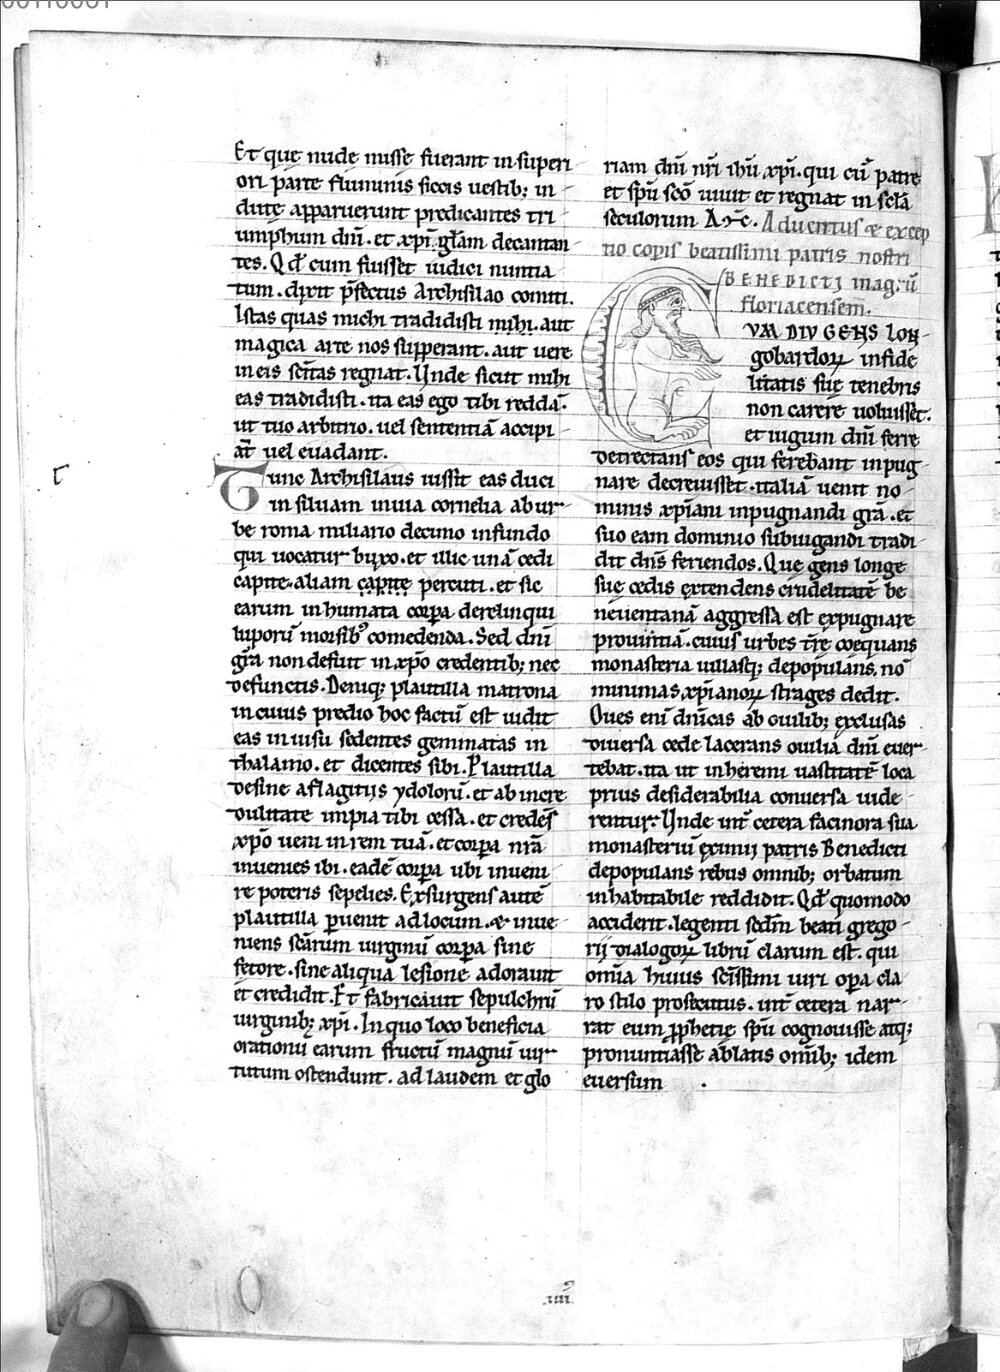 00110001
Et que nude misse fuerant in superi
ori parte fluminis siccis uestib; in
dute apparuerunt predicantes tri
umphum dnī. et xp̄i gl̄am decantan
tes. Qd̄ cum fuisset iudici nuntia
tum. dixit p̄fectus Archisilao comiti.
Istas quas michi tradidisti mihi. aut
magica arte nos supperant. aut uere
in eis sc̄itas regnat. Unde sicut mihi
eas tradidisti. ita eas ego tibi reddā.
ut tuo arbitrio. uel sententiā accipi
āt uel euadant.
Tunc Archisilaus iussit eas duci
in siluam in uia cornelia ab ur
be roma miliario decimo in fundo
qui uocatur buxo. et illic unā cedi
capite. aliam capite percuti. et sic
earum inhumata corpa derelinqui
luporū morsib; comedenda. Sed dnī
gr̄a non defuit in xp̄o credentib; nec
defunctis. Deniq; plautilla matrona
in cuius predio hoc factū est uidit
eas in uisu sedentes geminatas in
thalamo. et dicentes sibi. Plautilla
desine a flagitiis ydolorū. et ab incre
dulitate impia tibi cessa. et credēs
xp̄o ueni in rem tuā. et corpa nr̄a
inuenies ibi. eadē corpa ubi inueni
re poteris sepelies. Exsurgens autē
plautilla puenit ad locum. & inue
niens sc̄arum uirginū corpa sine
fetore. sine aliqua lesione adorauit
et credidit. Et fabricauit sepulchrū
uirginib; xp̄i. In quo loco beneficia
orationū earum fructū magnū uir
tutum ostendunt. ad laudem et glo
riam dnī nr̄i ihū xp̄i. qui cū patre
et sp̄u sc̄o uiuit et regnat in sc̄la
seculorum Am̄. Aduentus & excep
tio corpis beatissimi patris nostri
BENEDICTI in agrū
floriacensem.
CVM DIV GENS LON
gobardoꝝ infide
litatis sue tenebris
non carere uoluisset.
et iugum dnī ferre
detrectans eos qui ferebant inpug
nare decreuisset. italiā uenit no
minis xp̄iani inpugnandi gr̄a. et
suo eam dominio subiugandi tradi
dit dn̄s feriendos. Que gens longe
sue cedis extendens crudelitatē be
neuentanā aggressa est expugnare
prouintiā. cuius urbes tr̄e coequans
monasteria uillasq; depopulans. nō
minimas xp̄ianoꝝ strages dedit.
Oues enī dn̄icas ab ouilib; exclusas
diuersa cede lacerans ouilia dnī euer
tebat. ita ut in heremi uastitatē loca
prius desiderabilia conuersa uide
rentur. Unde int̄ cetera facinora sua
monasteriū eximij patris Benedicti
depopulans rebus omnib; orbatum
inhabitabile reddidit. Qd̄ quomodo
acciderit. legenti scdm̄ beati grego
rij dialogoꝝ librū clarum est. qui
omīa huius sc̄issimi uiri opa cla
ro stilo prosecutus. int̄ cetera nar
rat eum p̱phetie sp̄u cognouisse atq;
pronuntiasse ablatis omīb; idem
euersum .
.iiii.